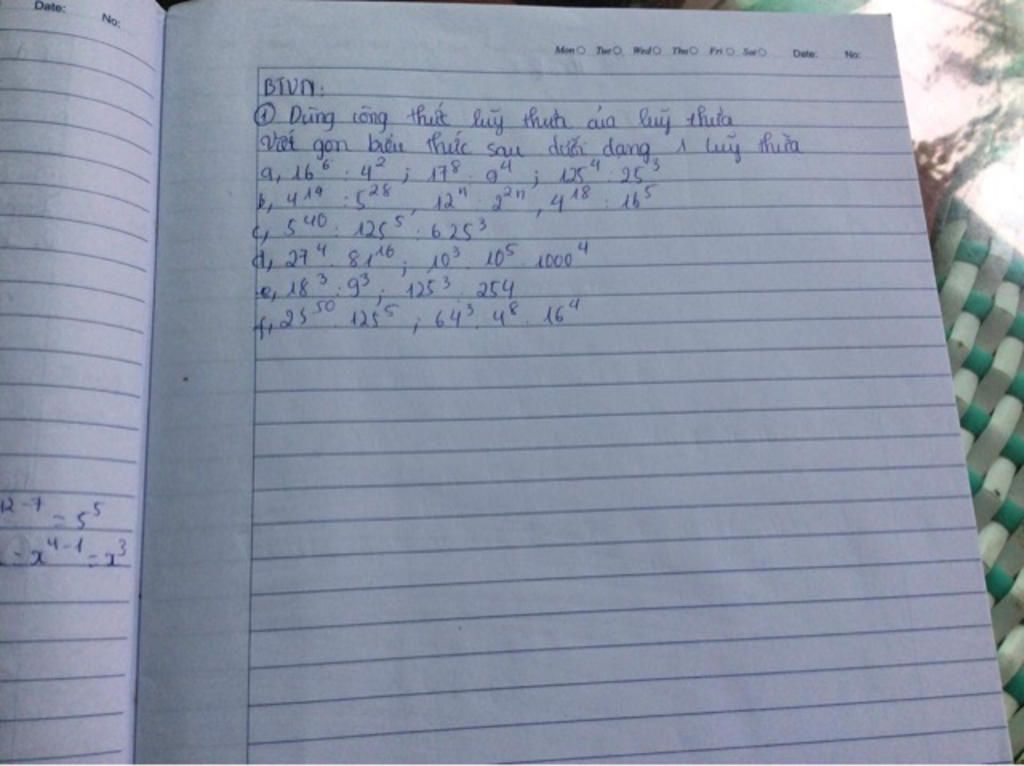 Date: No:
Mon Tue Wed Thu Fri Sat Date: No:
BTVN:
① Dùng công thức luỹ thừa của luỹ thừa
Viết gọn biểu thức sau dưới dạng 1 luỹ thừa
a, 16⁶ : 4² ; 17⁸ . 9⁴ ; 125⁴ : 25³
b, 4¹⁹ : 5²⁸ , 12ⁿ : 2²ⁿ , 4¹⁸ : 16⁵
c, 5⁴⁰ : 125⁵ : 625³
d, 27⁴ . 81¹⁶ ; 10³ . 10⁵ . 1000⁴
e, 18³ : 9³ ; 125³ : 254
f, 25⁵⁰ . 125⁵ ; 64³ . 4⁸ . 16⁴
12-7 = 5⁵
= x⁴⁻¹ = x³